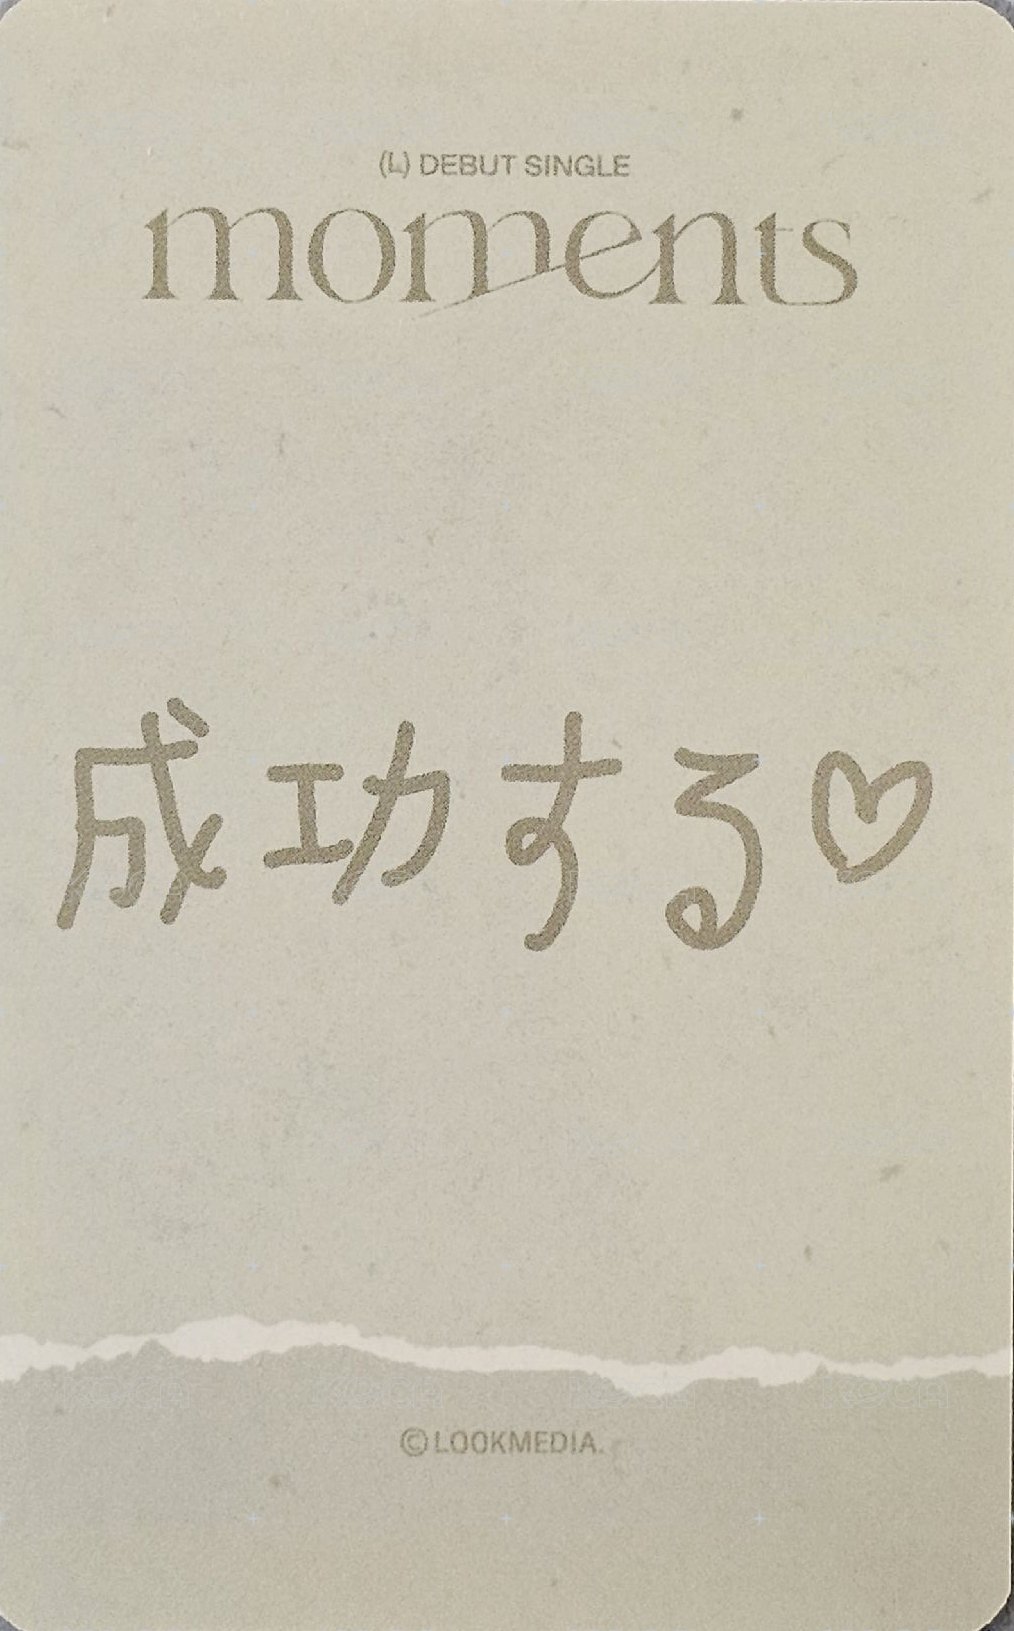 (L) DEBUT SINGLE
moments
成功する♡
©LOOKMEDIA.